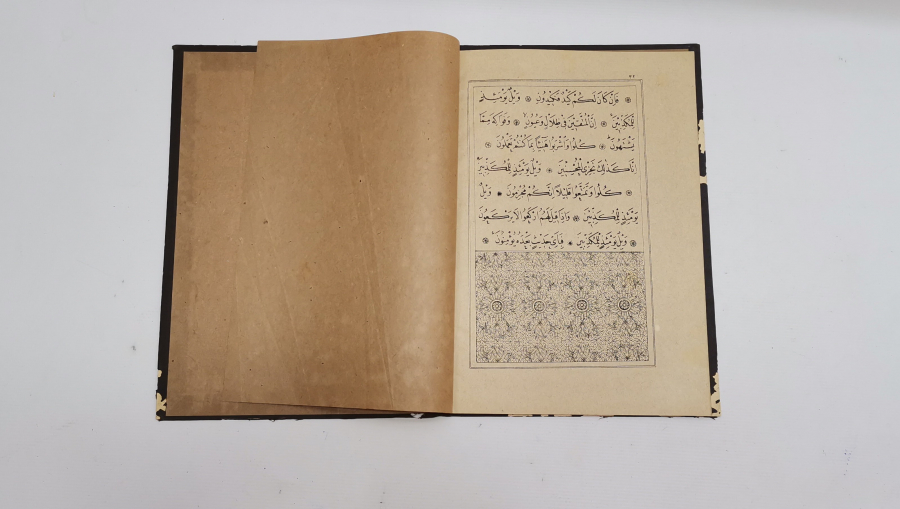 ٣٤
فَاِنْ كَانَ لَكُمْ كَيْدٌ فَكِيدُونِ ۞ وَيْلٌ يَوْمَئِذٍ
لِلْمُكَذِّبِينَ ۞ اِنَّ الْمُتَّقِينَ فِى ظِلَالٍ وَعُيُونٍ ۞ وَفَوَاكِهَ مِمَّا
يَشْتَهُونَ ۞ كُلُوا وَاشْرَبُوا هَنِيئًا بِمَا كُنْتُمْ تَعْمَلُونَ ۞
اِنَّا كَذٰلِكَ نَجْزِى الْمُحْسِنِينَ ۞ وَيْلٌ يَوْمَئِذٍ لِلْمُكَذِّبِينَ
۞ كُلُوا وَتَمَتَّعُوا قَلِيلًا اِنَّكُمْ مُجْرِمُونَ ۞ وَيْلٌ
يَوْمَئِذٍ لِلْمُكَذِّبِينَ ۞ وَاِذَا قِيلَ لَهُمُ ارْكَعُوا لَا يَرْكَعُونَ
۞ وَيْلٌ يَوْمَئِذٍ لِلْمُكَذِّبِينَ ۞ فَبِاَىِّ حَدِيثٍ بَعْدَهُ يُؤْمِنُونَ ۞